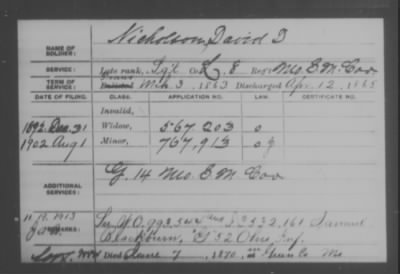 Nicholson, David I
NAME OF SOLDIER:
SERVICE: Late rank, Sgt Co. L, 8 Reg't Mo. S M Cav
TERM OF SERVICE: Enlisted Mch 3, 1863 Discharged Apr. 12, 1865
DATE OF FILING. CLASS. APPLICATION NO. LAW. CERTIFICATE NO.
Invalid,
1892 Dec 31 Widow, 567 203 o
1902 Aug 1 Minor, 767,913 o g
ADDITIONAL SERVICES: G. 14 Mo. S M Cav
REMARKS: See W.O. 993,544 and 2532,161 Samuel
Blackburn, "G" 52 Ohio Inf.
Died June 7, 1870, in Mo